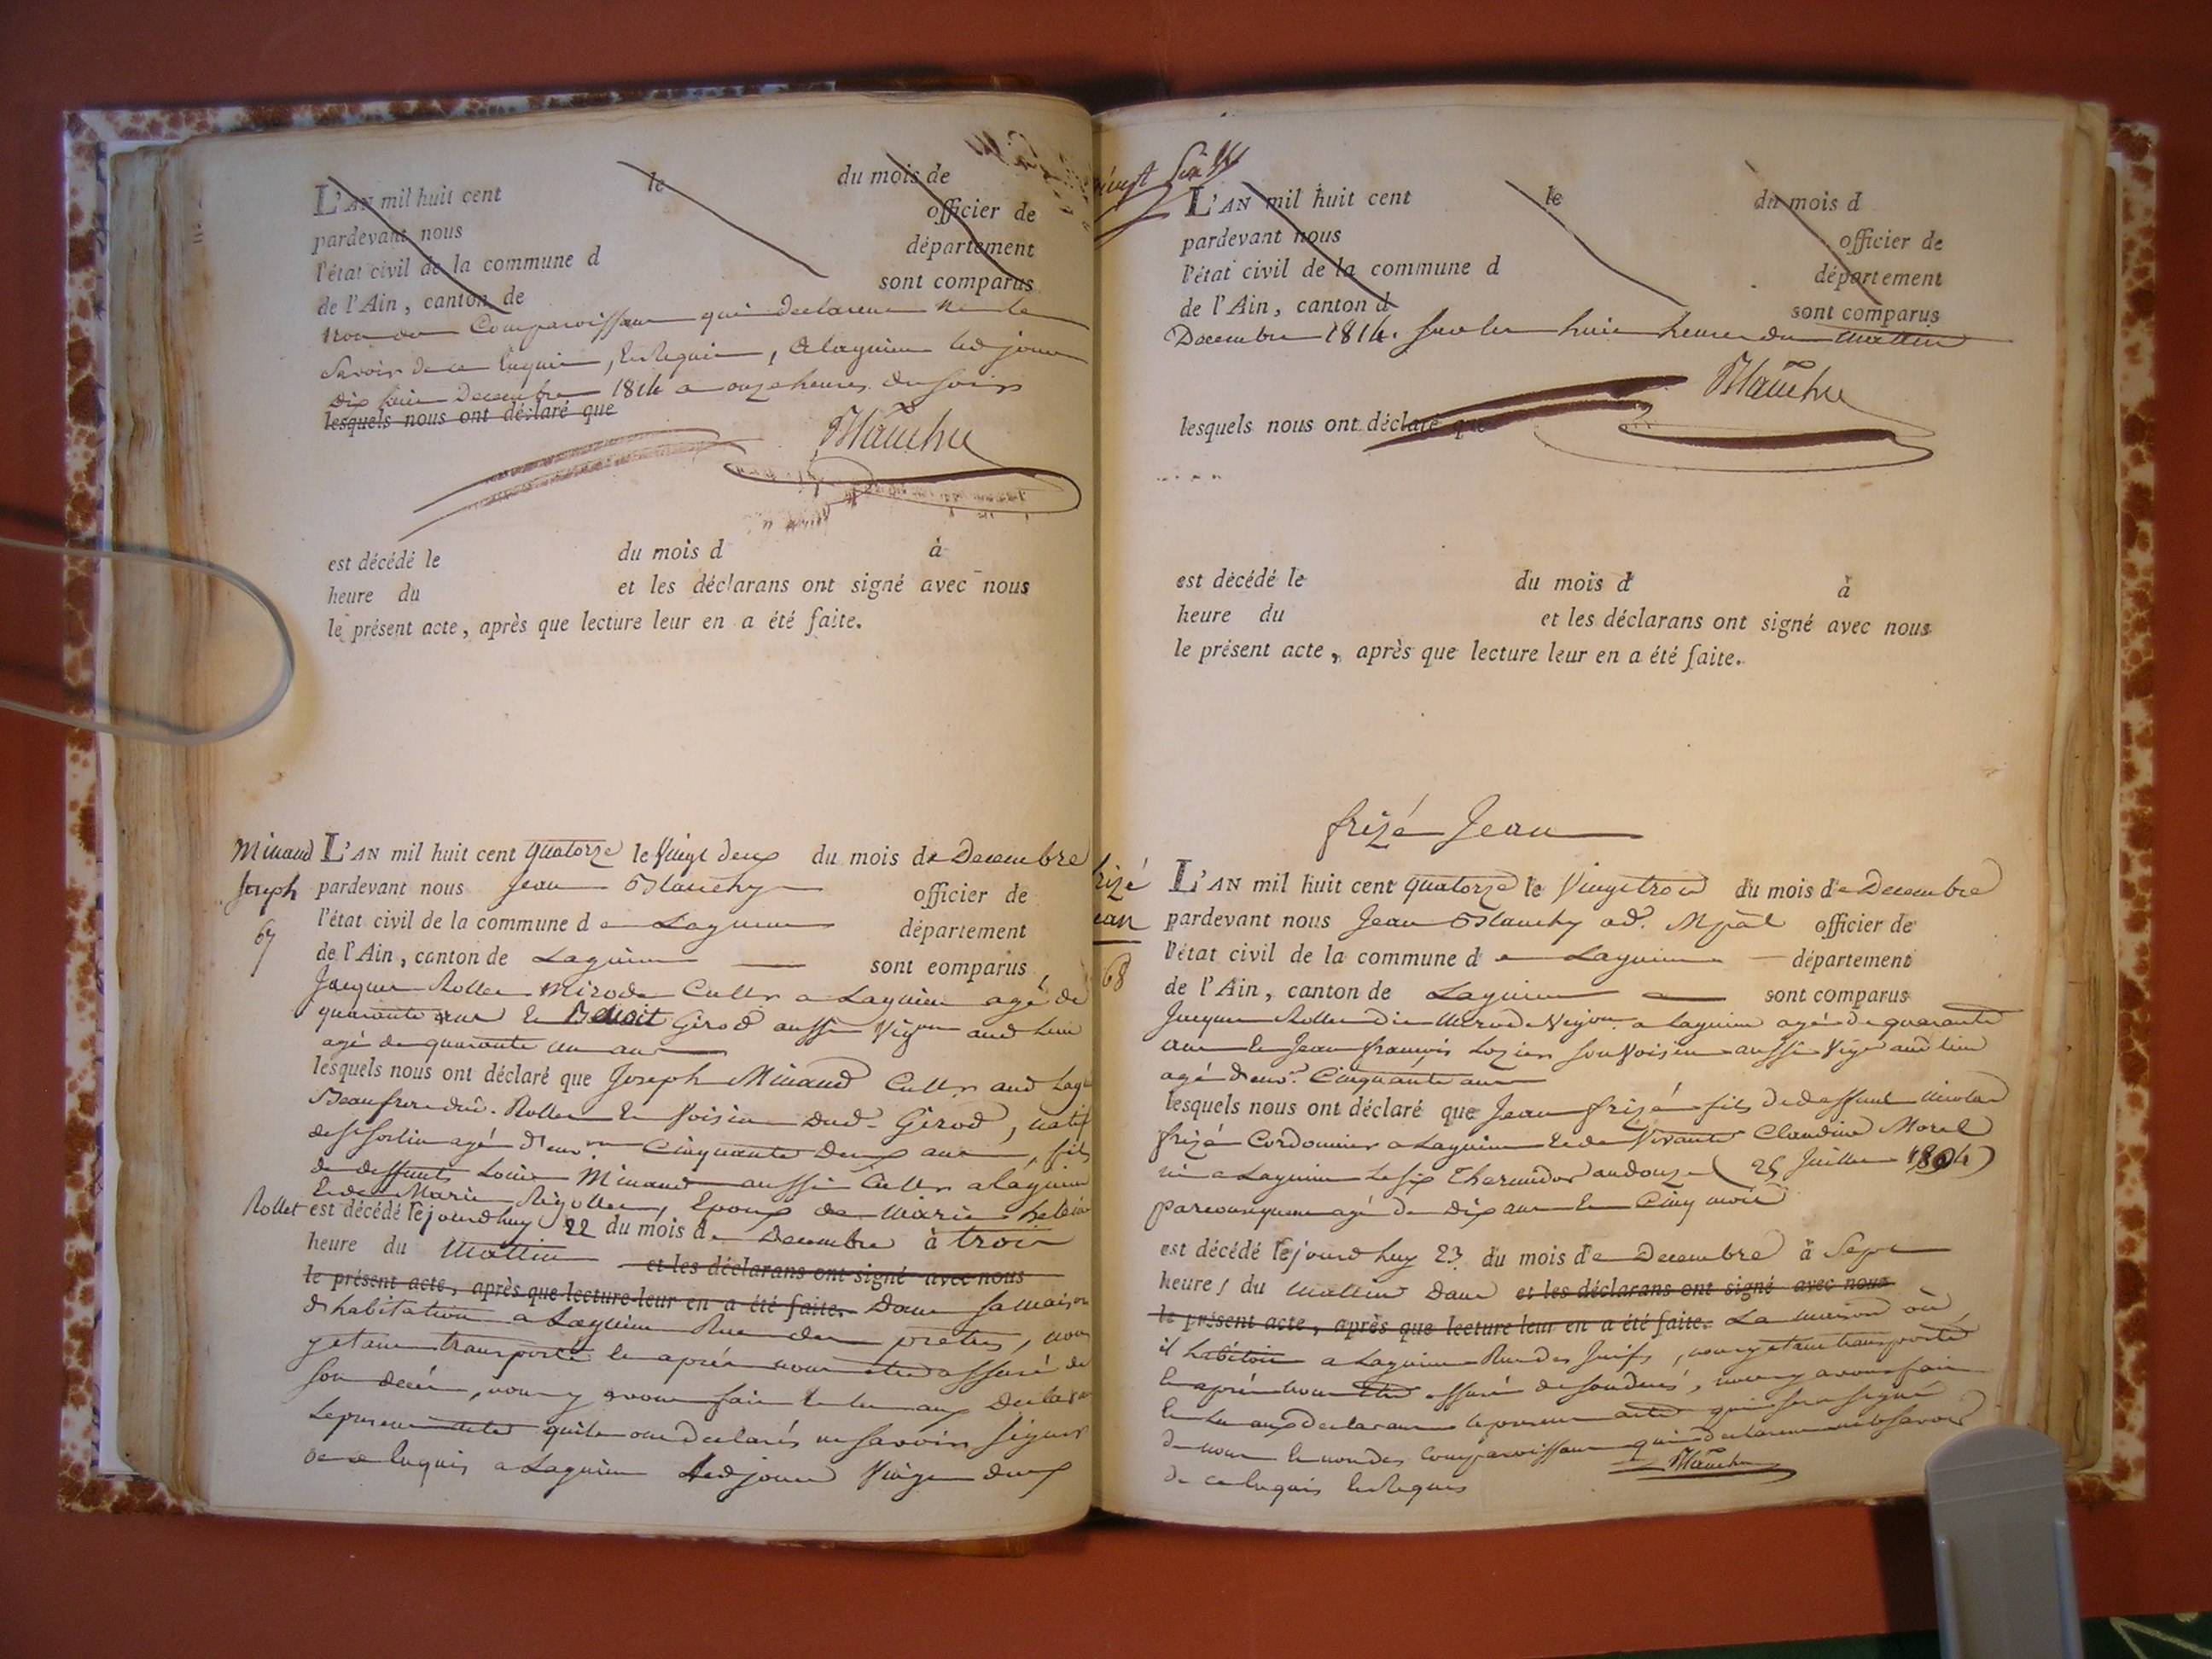 L'AN mil huit cent le du mois de
pardevant nous officier de
l'état civil de la commune d département
de l'Ain, canton de sont comparus
non des Comparoissans qui declarent ne le
Savoir de ce Enquis, Et Requis, a Lagnieu led. jour
Dix huit Decembre 1814 a onze heures du soir
lesquels nous ont déclaré que
Blanchy
est décédé le du mois d à
heure du et les déclarans ont signé avec nous
le présent acte, après que lecture leur en a été faite.
Minaud
Joseph
67
L'AN mil huit cent quatorze le Vingt deux du mois de Decembre
pardevant nous Jean Blanchy officier de
l'état civil de la commune de Lagnieu département
de l'Ain, canton de Lagnieu sont comparus
Jacques Rollet Cultr a Lagnieu agé de
quarante ans Et Benoit Girod aussi Vigon aud. lieu
agé de quarante un ans
lesquels nous ont déclaré que Joseph Minaud Cultr aud. Lag
Beaufrere dud. Rollet Et Voisin dud. Girod, natif
agé d'env.on Cinquante deux ans, fils
de deffunts Louis Minaud aussi Cultr a Lagnieu
Et de Marie Rigollet, Epoux de Marie
Rollet est décédé le jourd'huy 22 du mois de Decembre à trois
heure du Mattin et les déclarans ont signé avec nous
le présent acte, après que lecture leur en a été faite. Dans sa maison
d'habitation a Lagnieu Rue des pretres, nous
y etant transporté Et après nous etre assuré de
son decés, nous y avons fait Et lu aux Declarans
Le present acte qu'ils ont declarés ne savoir signer
de ce Enquis a Lagnieu led. jour Vingt deux
vingt Six
L'AN mil huit cent le du mois d
pardevant nous officier de
l'état civil de la commune d département
de l'Ain, canton d sont comparus
Decembre 1814. sur les huit heures du mattin
Blanchy
lesquels nous ont déclaré que
est décédé le du mois d à
heure du et les déclarans ont signé avec nous
le présent acte, après que lecture leur en a été faite.
frizé Jean
frizé
Jean
68
L'AN mil huit cent quatorze le Vingt trois du mois de Decembre
pardevant nous Jean Blanchy ad.t Mpal officier de
l'état civil de la commune de Lagnieu département
de l'Ain, canton de Lagnieu sont comparus
Jacques Rollet dit Vigon a Lagnieu agé de quarante
ans Et Jean françois Lozier son Voisin aussi Vigon aud. lieu
agé d'env.n Cinquante ans
lesquels nous ont déclaré que Jean frizé fils de deffunt Nicolas
frizé Cordonnier a Lagnieu Et de Vivante Claudine Morel
né a Lagnieu Le six Thermidor an douze (25 Juillet 1804)
par consequent agé de Dix ans Et Cinq mois
est décédé le jourd'huy 23 du mois de Decembre à Sept
heures du Mattin Dans et les déclarans ont signé avec nous
le présent acte, après que lecture leur en a été faite. La maison où
il habitoit a Lagnieu Rue des Juifs, nous y etant transporté
Et après nous etre assuré de son decés, nous y avons fait
Et lu aux declarans le present acte qui sera signé
de nous Et non des Comparoissans qui declarent ne le savoir
de ce Enquis Et Requis
Blanchy